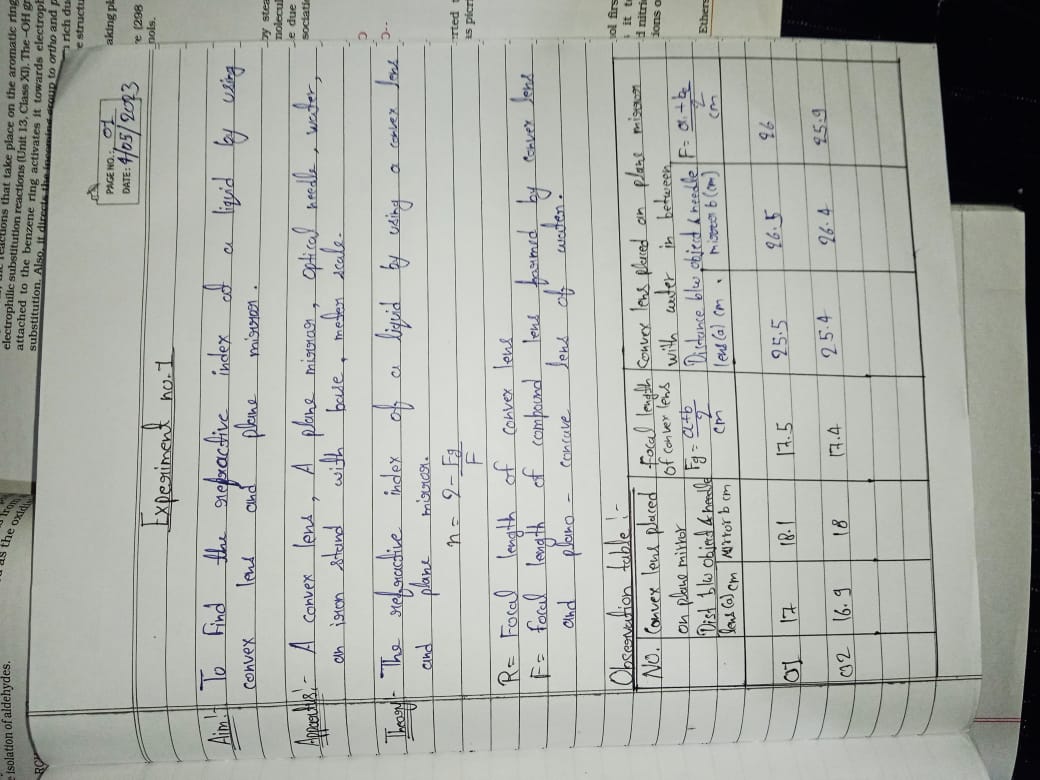 e isolation of aldehydes.
as the oxidi
from
reactions that take place on the aromatic ring
electrophilic substitution reactions (Unit 13, Class XI). The –OH gr
attached to the benzene ring activates it towards electroph
substitution. Also, it directs the incoming group to ortho and p
rich du
e structu
PAGE NO.: 01
DATE: 4/05/2023
aking pl
(298
nols.
Experiment no.1
Aim:- To Find the refractive index of a liquid by using
convex lens and plane mirror.
by stea
molecul
e due
sociati
Apparatus:- A convex lens, A plane mirror, optical needle, water,
an iron stand with base, meter scale.
Theory:- The refractive index of a liquid by using a convex lens
and plane mirror.
n = 2 - Fg
F
erted
as picr
R = Focal length of convex lens
F = focal length of compound lens formed by convex lens
and plano - concave lens of water.
Observation table :-
NO. Convex lens placed on plane mirror Dist b/w object & needle
lens (a) cm Mirror b cm
Focal length of convex lens Fg = a+b/2 cm
Convex lens placed on plane mirror with water in between
Distance b/w object & needle
lens (a) cm. mirror b (cm)
F = a+b/2 cm
01 17 18.1 17.5 25.5 26.5 26
02 16.9 18 17.4 25.4 26.4 25.9
ol firs
it t
d nitri
ions o
Ethers